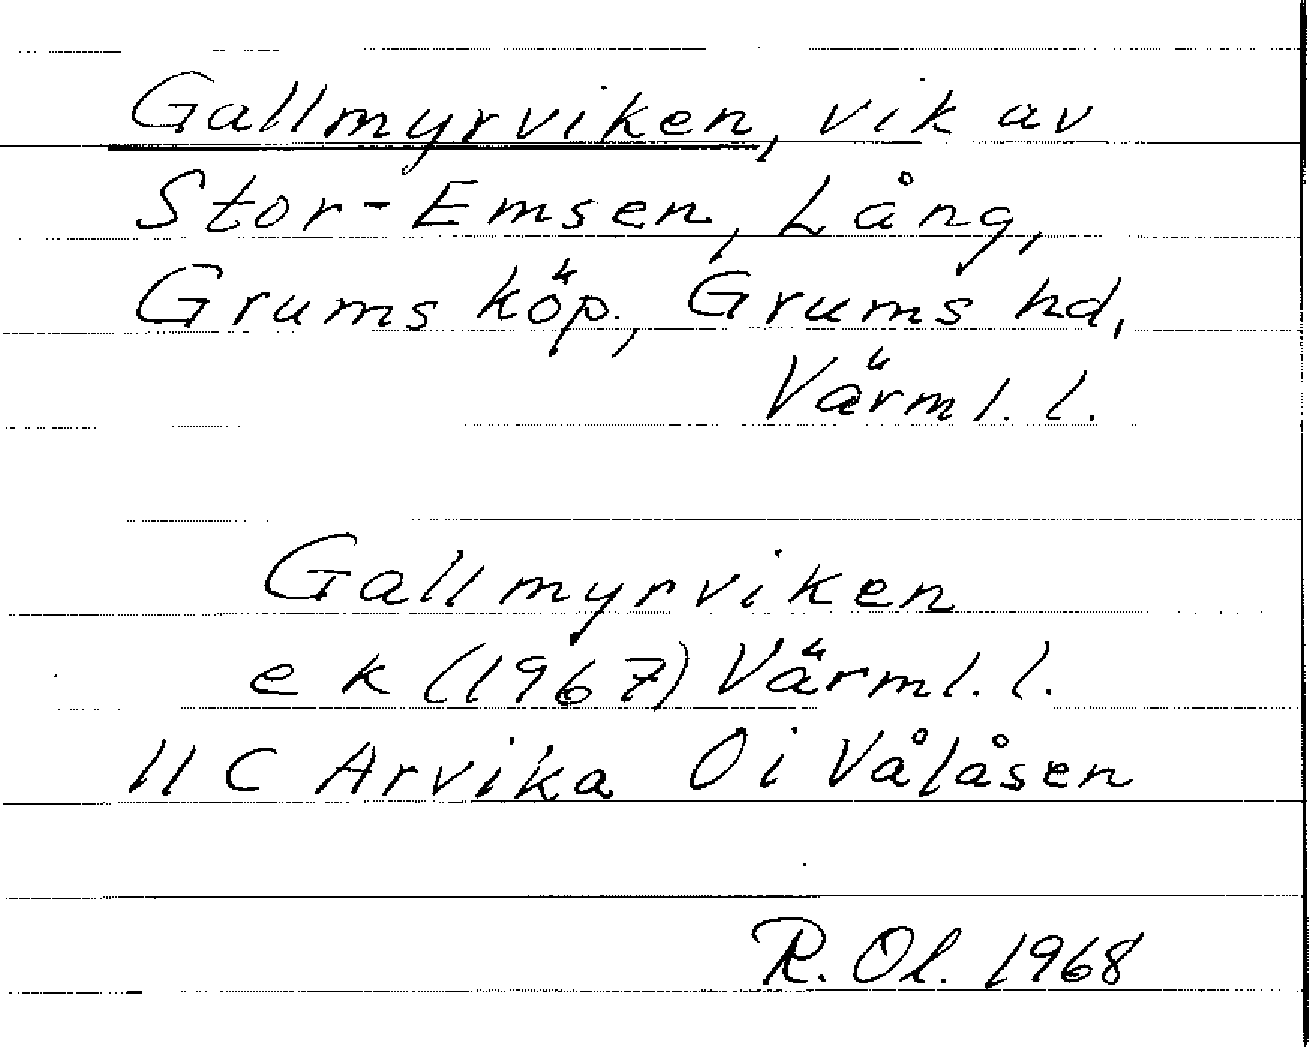 Gallmyrviken, vik av
Stor-Emsen, Lång,
Grums köp., Grums hd,
Värml. l.
Gallmyrviken
e k (1967) Värml. l.
11 C Arvika 0 i Vålåsen
R. Ol. 1968